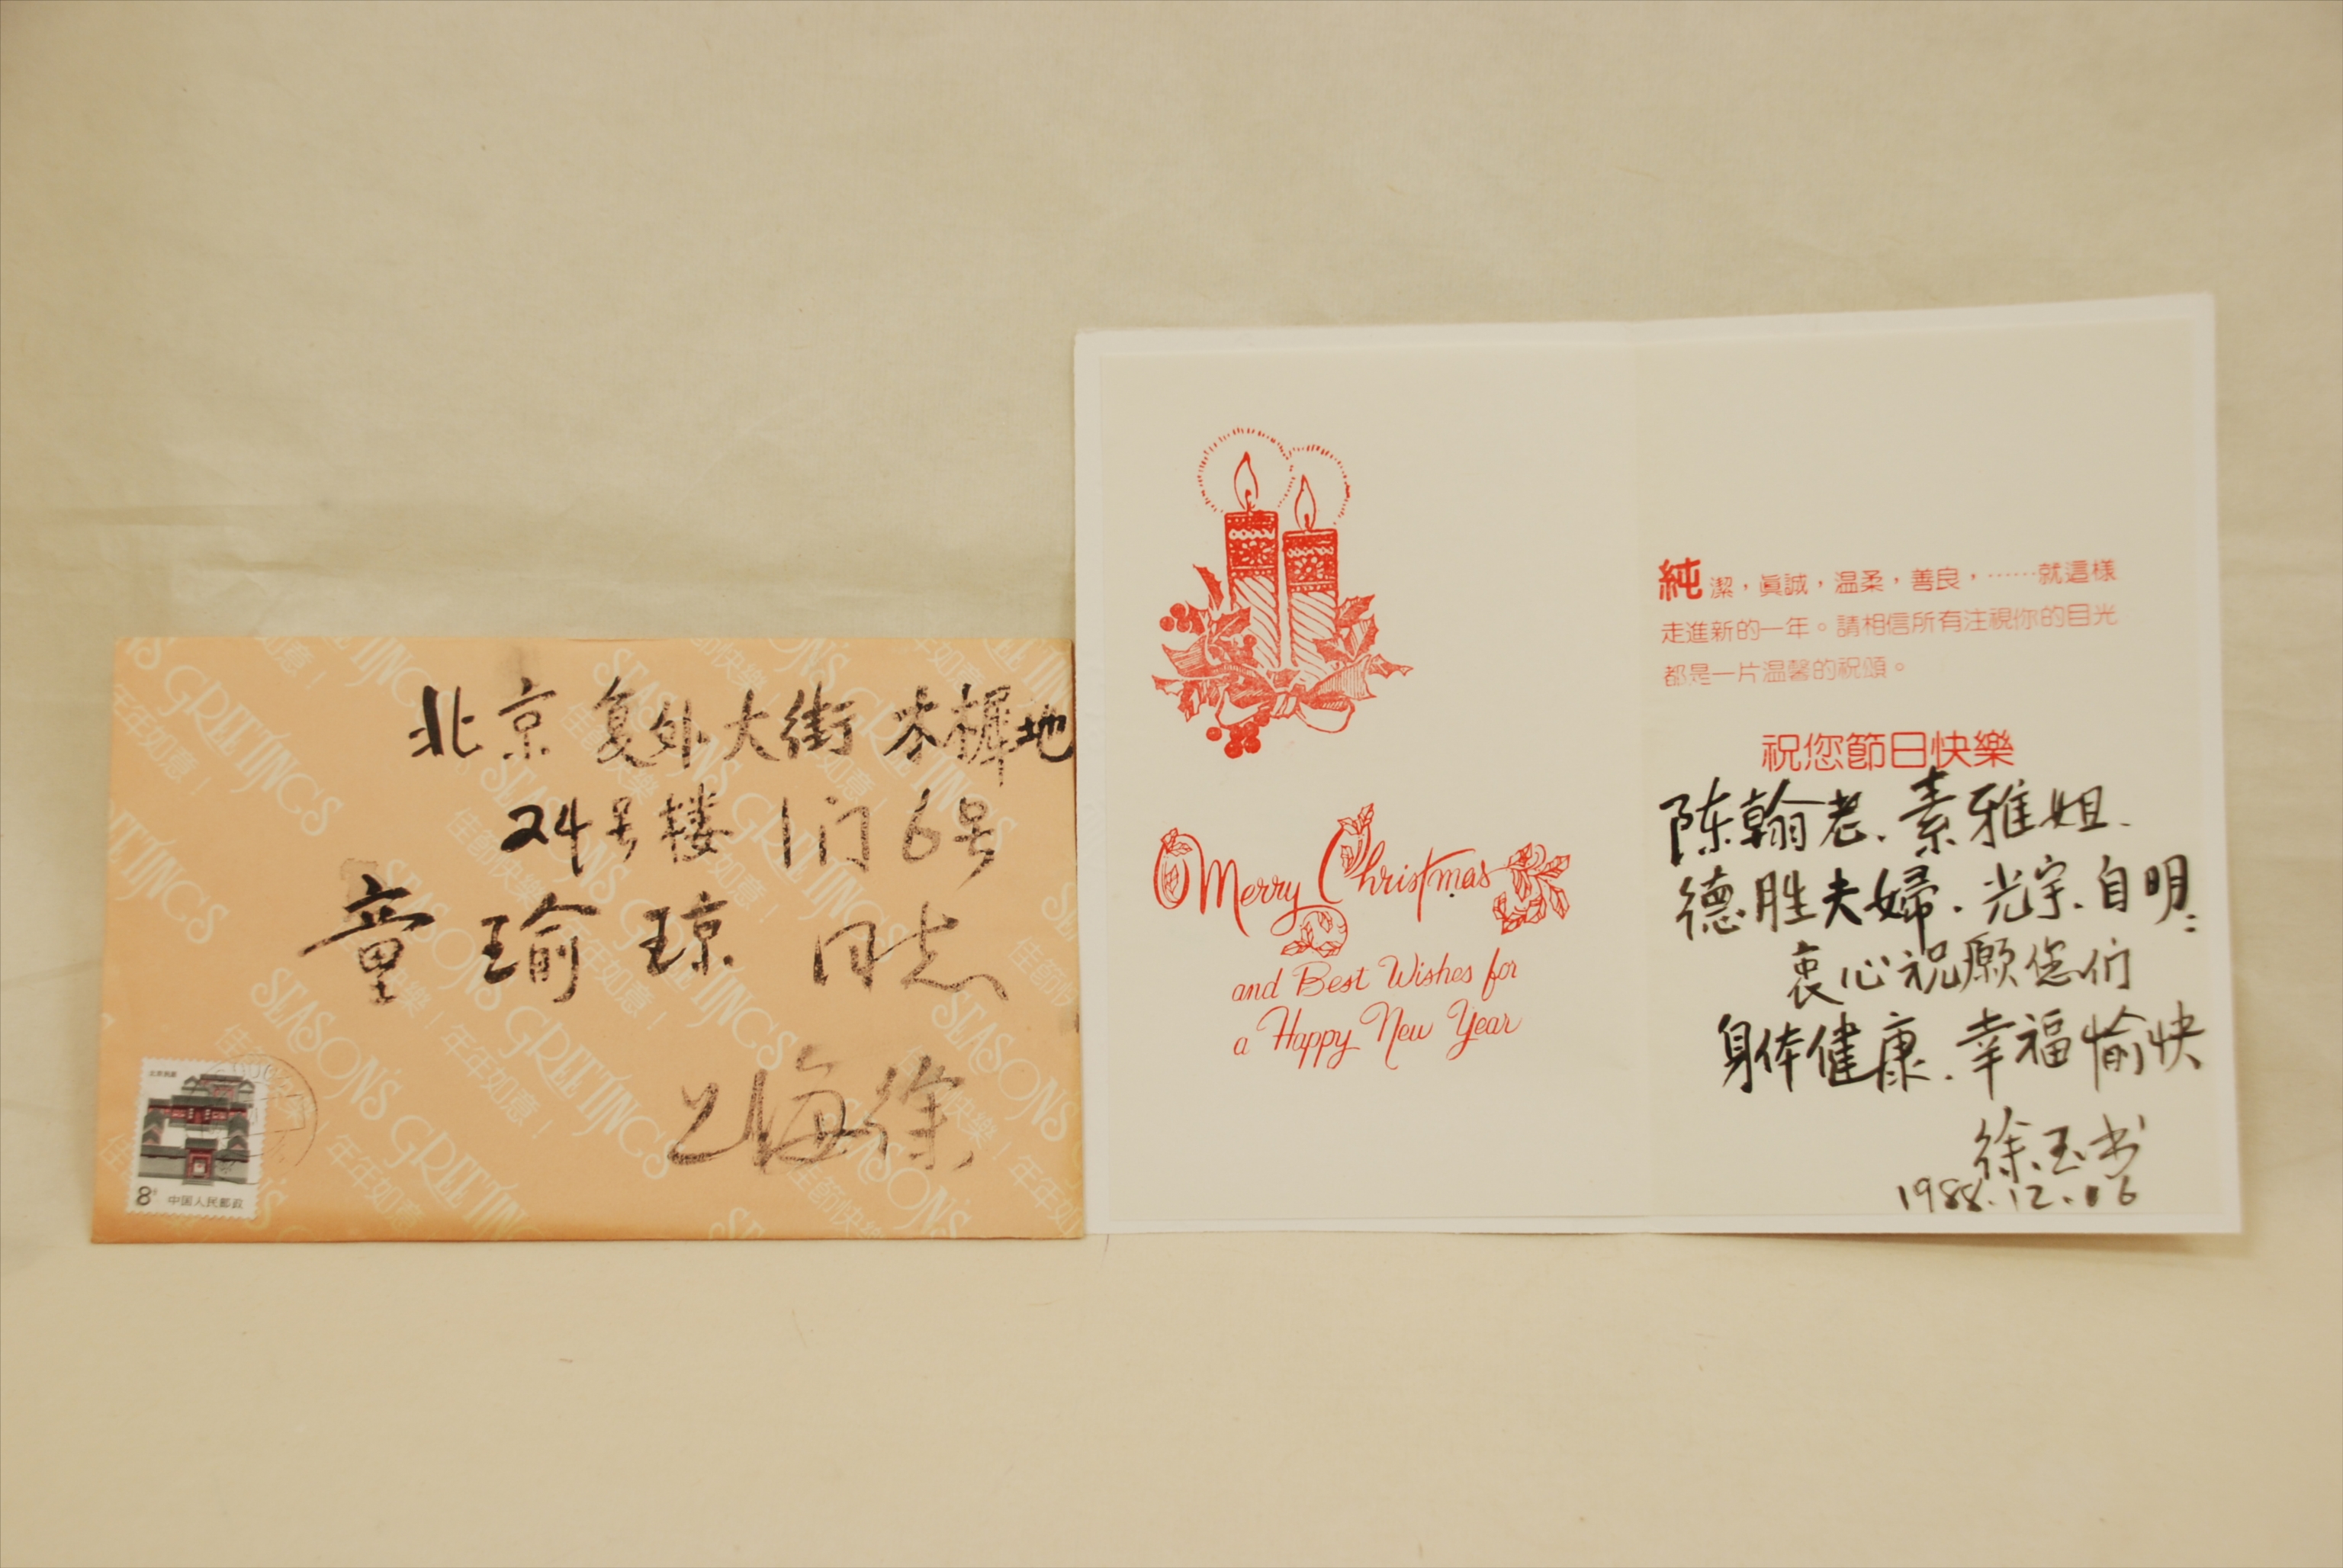 北京复外大街木樨地
24号楼1门6号
童瑜琼 同志
上海徐
8分 中国人民邮政
SEASON'S GREETINGS
佳節快樂！年年如意！
Merry Christmas
and Best Wishes for
a Happy New Year
純潔，眞誠，温柔，善良，……就這樣
走進新的一年。請相信所有注視你的目光
都是一片温馨的祝頌。
祝您節日快樂
陈翰老、素雅姐、
德胜夫婦、光宇、自明：
衷心祝願您们
身体健康、幸福愉快
徐玉书
1988.12.16